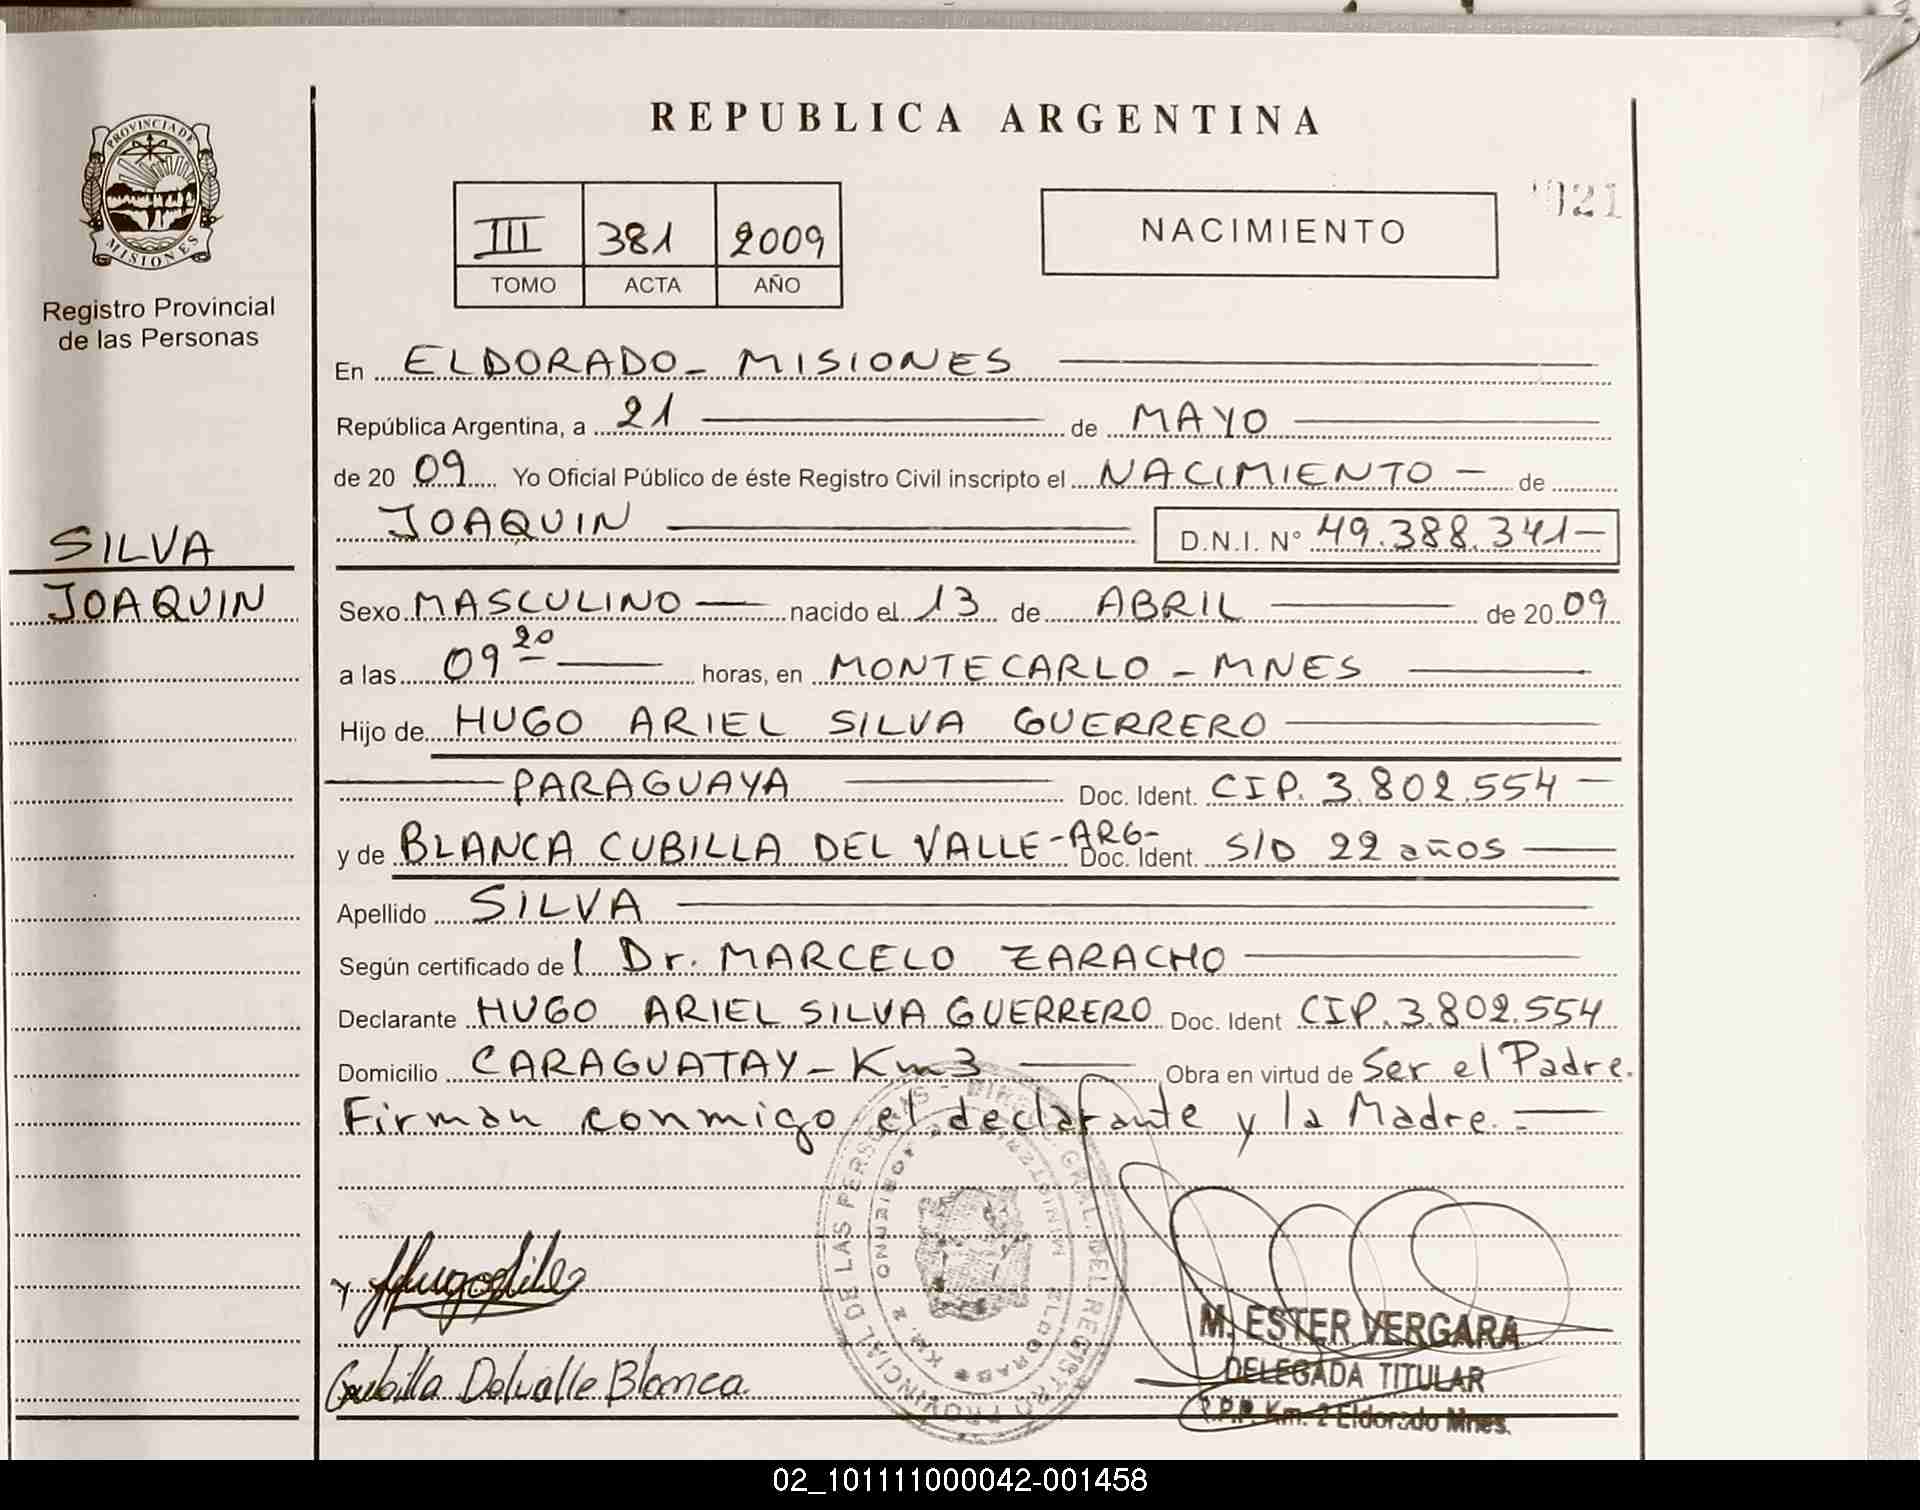 REPUBLICA ARGENTINA
PROVINCIA DE
MISIONES
Registro Provincial
de las Personas
III 381 2009
TOMO ACTA AÑO
NACIMIENTO
021
En ELDORADO - MISIONES
República Argentina, a 21 de MAYO
de 20 09 Yo Oficial Público de éste Registro Civil inscripto el NACIMIENTO - de
JOAQUIN D.N.I. N° 49.388.341-
SILVA
JOAQUIN
Sexo MASCULINO nacido el 13 de ABRIL de 20 09
a las 09 20 horas, en MONTECARLO - MNES
Hijo de HUGO ARIEL SILVA GUERRERO
PARAGUAYA Doc. Ident. CIP. 3.802.554 -
y de BLANCA CUBILLA DEL VALLE -ARG- Doc. Ident. S/D 22 años
Apellido SILVA
Según certificado de l Dr. MARCELO ZARACHO
Declarante HUGO ARIEL SILVA GUERRERO Doc. Ident CIP. 3.802.554
Domicilio CARAGUATAY - Km 3 Obra en virtud de Ser el Padre.
Firman conmigo el declarante y la Madre. -
REGISTRO PROVINCIAL DE LAS PERSONAS
ELDORADO KM. 2
Hugo Silva
Cubilla Delvalle Blanca.
M. ESTER VERGARA
DELEGADA TITULAR
R.P.P. Km. 2 Eldorado Mnes.
02_101111000042-001458